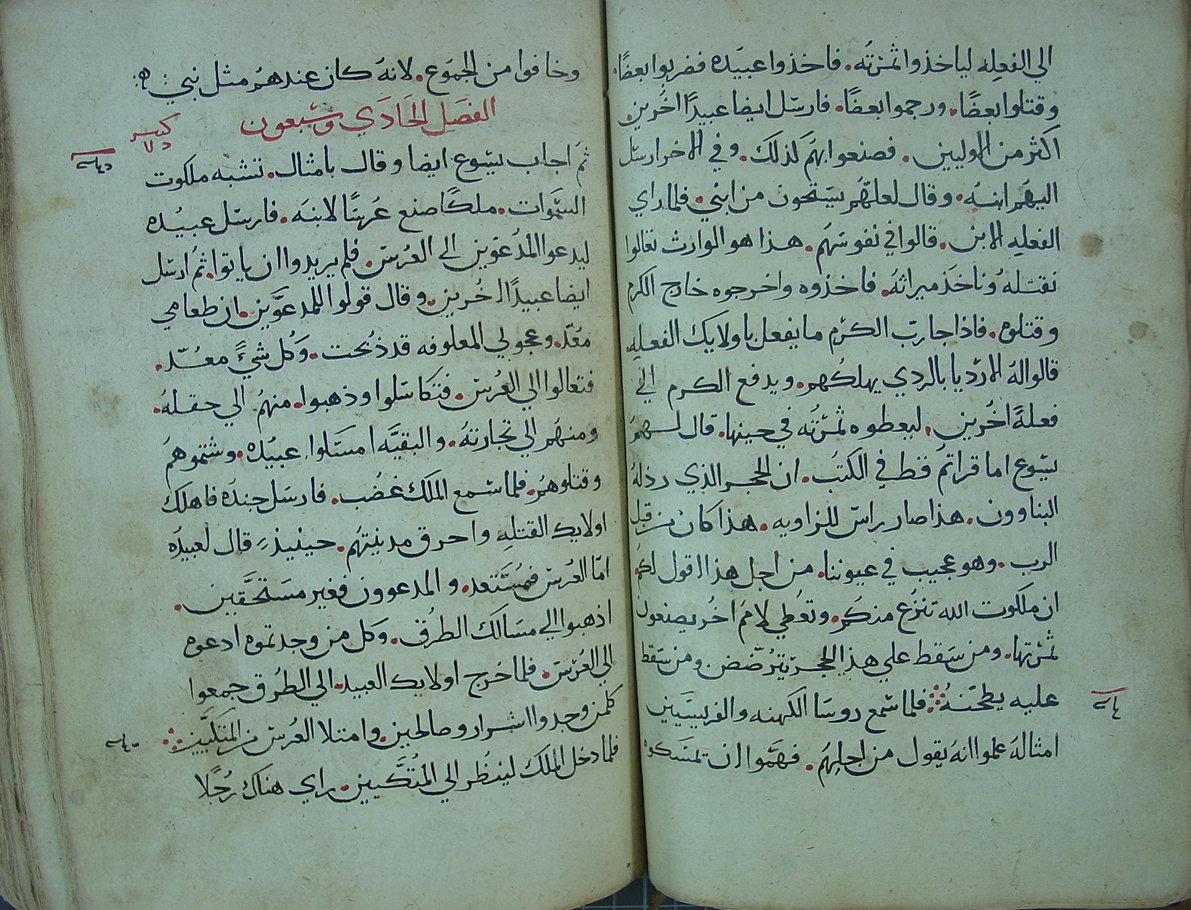 الي الفعله لياخذوا ثمرته. فاخذوا عبيده فضربوا بعضًا.
وقتلوا بعضًا. ورجموا بعضًا. فارسل ايضا عبيدًا اخرين
اكثر من الاوليين. فصنعوا بهم لذلك. وفي الاخر ارسل
اليهم ابنه. وقال لعلهم يستحون من ابني. فلما راي
الفعله الابن. قالوا في نفوسهم. هذا هو الوارث تعالوا
نقتله وناخذ ميراثه. فاخذوه واخرجوه خارج الكرم
وقتلوه. فاذا جا رب الكرم ما يفعل باولايك الفعله.
قالوا له الارديا بالردي يهلكهم. ويدفع الكرم الي
فعلةً اخرين. ليعطوه ثمرته في حينها. قال لهم
يسوع اما قراتم قط في الكتب. ان الحجر الذي رذله
البناوون. هذا صار راس للزاويه. هذا كان من قبل
الرب. وهو عجيب في عيوننا. من اجل هذا اقول لكم
ان ملكوت الله تنزع منكم. وتعطي لامم اخر يصنعون
ثمرتها. ومن سقط علي هذا الحجر يترضض. ومن سقط
عليه يطحنه فلما سمع روسا الكهنه والفريسيين
امثاله علموا انه يقول من اجلهم. فهموا ان تمسكوه
وخافوا من الجموع. لانه كان عندهم مثل نبي
الفصل الحادي وسبعون
ثم اجاب يسوع ايضا وقال بامثال. تشبه ملكوت
السموات. ملكًا صنع عرسًا لابنه. فارسل عبيده
ليدعوا المدعوين الي العرس. فلم يريدوا ان ياتوا. ثم ارسل
ايضا عبيدًا اخرين. وقال قولوا للمدعوين. ان طعامي
معد. وعجولي المعلوفه قد ذبحت. وكل شيً معد.
فتعالوا الي العرس. فتكاسلوا وذهبوا. منهم الي حقله.
ومنهم الي تجارته. والبقيه امسكوا عبيده. وشتموهم
وقتلوهم. فلما سمع الملك غضب. فارسل جنده فاهلك
اولايك القتله واحرق مدينتهم. حينيذ قال لعبيده
اما العرس فمستعد. والمدعوون فغير مستحقين.
اذهبوا الي مسالك الطرق. وكل من وجدتموه ادعوه
الي العرس. فلما خرج اولايك العبيد. الي الطرق جمعوا
كلمن وجدوا اشرار وصالحين. وامتلا العرس من المتكيين
فلما دخل الملك لينظر الي المتكيين. راي هناك رجلًا